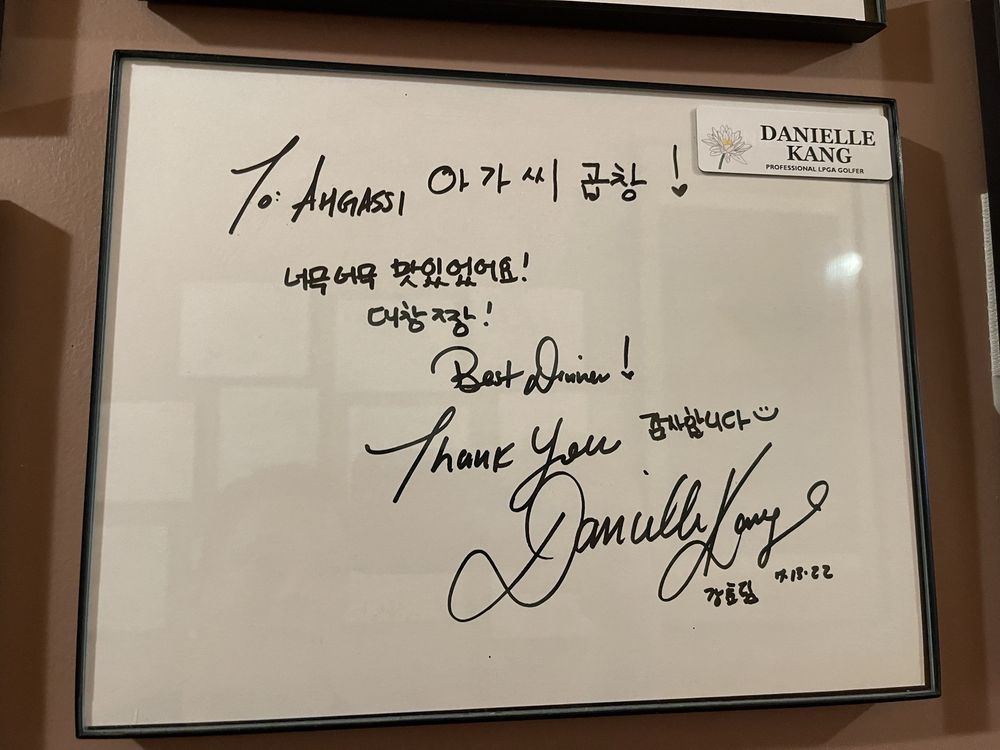 DANIELLE
KANG
PROFESSIONAL LPGA GOLFER
To: AHGASSI 아가씨 곱창!
너무너무 맛있었어요!
대창 짱!
Best Dinner!
Thank You 감사합니다
Danielle Kang
강효림 4.13.22